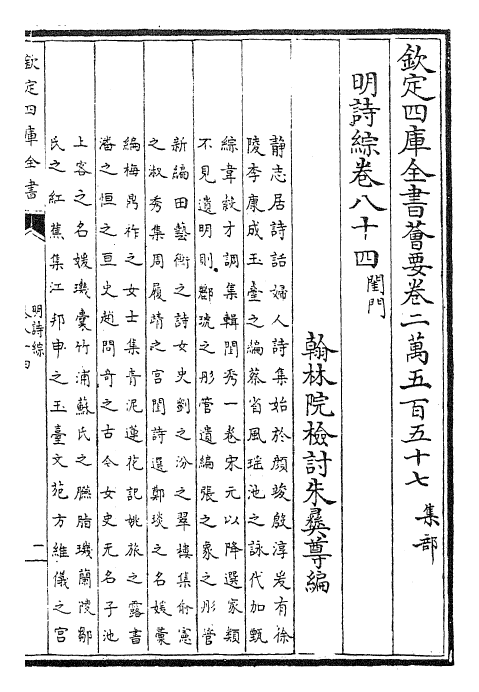 欽定四庫全書薈要卷二萬五百五十七 集部
明詩綜卷八十四 閨門
翰林院檢討朱彝尊編
靜志居詩話婦人詩集始於顔竣殷淳爰有徐
陵李康成玉臺之編蔡省風瑶池之詠代加甄
綜韋縠才調集輯閨秀一卷宋元以降選家類
不見遺明則酈琥之彤管遺編張之象之彤管
新編田藝衡之詩女史劉之汾之翠樓集俞憲
之淑秀集周履靖之宫閨詩選鄭琰之名媛彙
編梅鼎祚之女士集青泥蓮花記姚旅之露書
潘之恒之亘史趙問奇之古今女史无名子池
上客之名媛璣囊竹浦蘇氏之臙脂璣蘭陵鄒
氏之紅蕉集江邦申之玉臺文苑方維儀之宫
欽定四庫全書
明詩綜
卷八十四
一